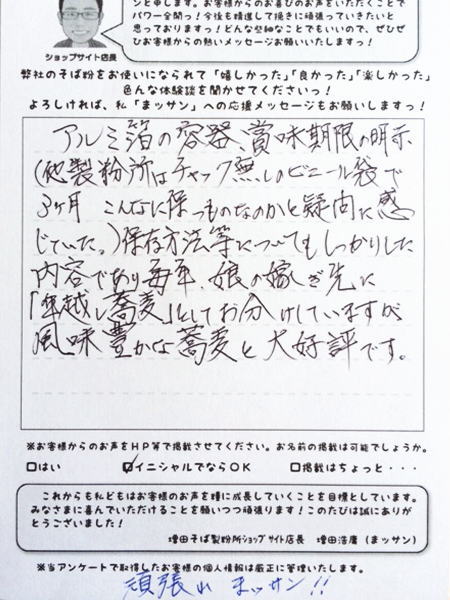 ンと申します。お客様からのお喜びのお声をいただくことで
パワー全開っ！今後も精進して挽きに頑張っていきたいと
思っておりますっ！どんな些細なことでもいいので、ぜひぜ
ひお客様からの熱いメッセージお願いいたしますっ！
ショップサイト店長
弊社のそば粉をお使いになられて「嬉しかった」「良かった」「楽しかった」
色んな体験談を聞かせてくださいっ！
よろしければ、私「まッサン」への応援メッセージもお願いしますっ！
アルミ箔の容器、賞味期限の明示
(他製粉所はチャック無しのビニール袋で
3ヶ月 こんなに保つものなのかと疑問に感
じていた。)保存方法等についてもしっかりした
内容であり毎年、娘の嫁ぎ先に
「年越し蕎麦」としてお分けしていますが
風味豊かな蕎麦と大好評です。
※お客様からのお声をHP等で掲載させてください。お名前の掲載は可能でしょうか。
□はい ☑イニシャルでならOK □掲載はちょっと・・・
これからも私どもはお客様のお声を糧に成長していくことを目標としています。
みなさまに喜んでいただけることを願いつつ頑張ります！このたびは誠にありが
とうございました！
増田そば製粉所ショップサイト店長 増田浩庸（まッサン）
※当アンケートで取得したお客様の個人情報は厳正に管理いたします。
頑張れ まッサン!!